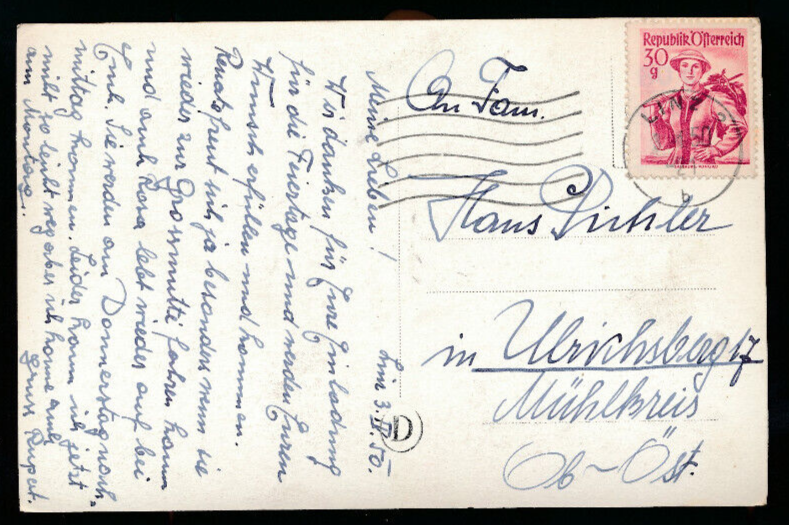 Linz 3.IV.50.
Meine Lieben!
Wir danken für Eure Einladung
für die Feiertage und werden Euren
Wunsch erfüllen und kommen.
Renate freut sich ja besonders wenn sie
wieder zur Grossmutti fahren kann
und auch Rosa lebt wieder auf bei
Euch. Sie werden am Donnerstag nach=
mittag kommen. Leider kann ich jetzt
nicht so leicht weg aber ich komme
am Montag.
Gruss Rupert.
An Fam.
Hans Pichler
in Ulrichsberg 17
Mühlkreis
Ob-Öst.
Republik Österreich
30
g
LINZ
b
D